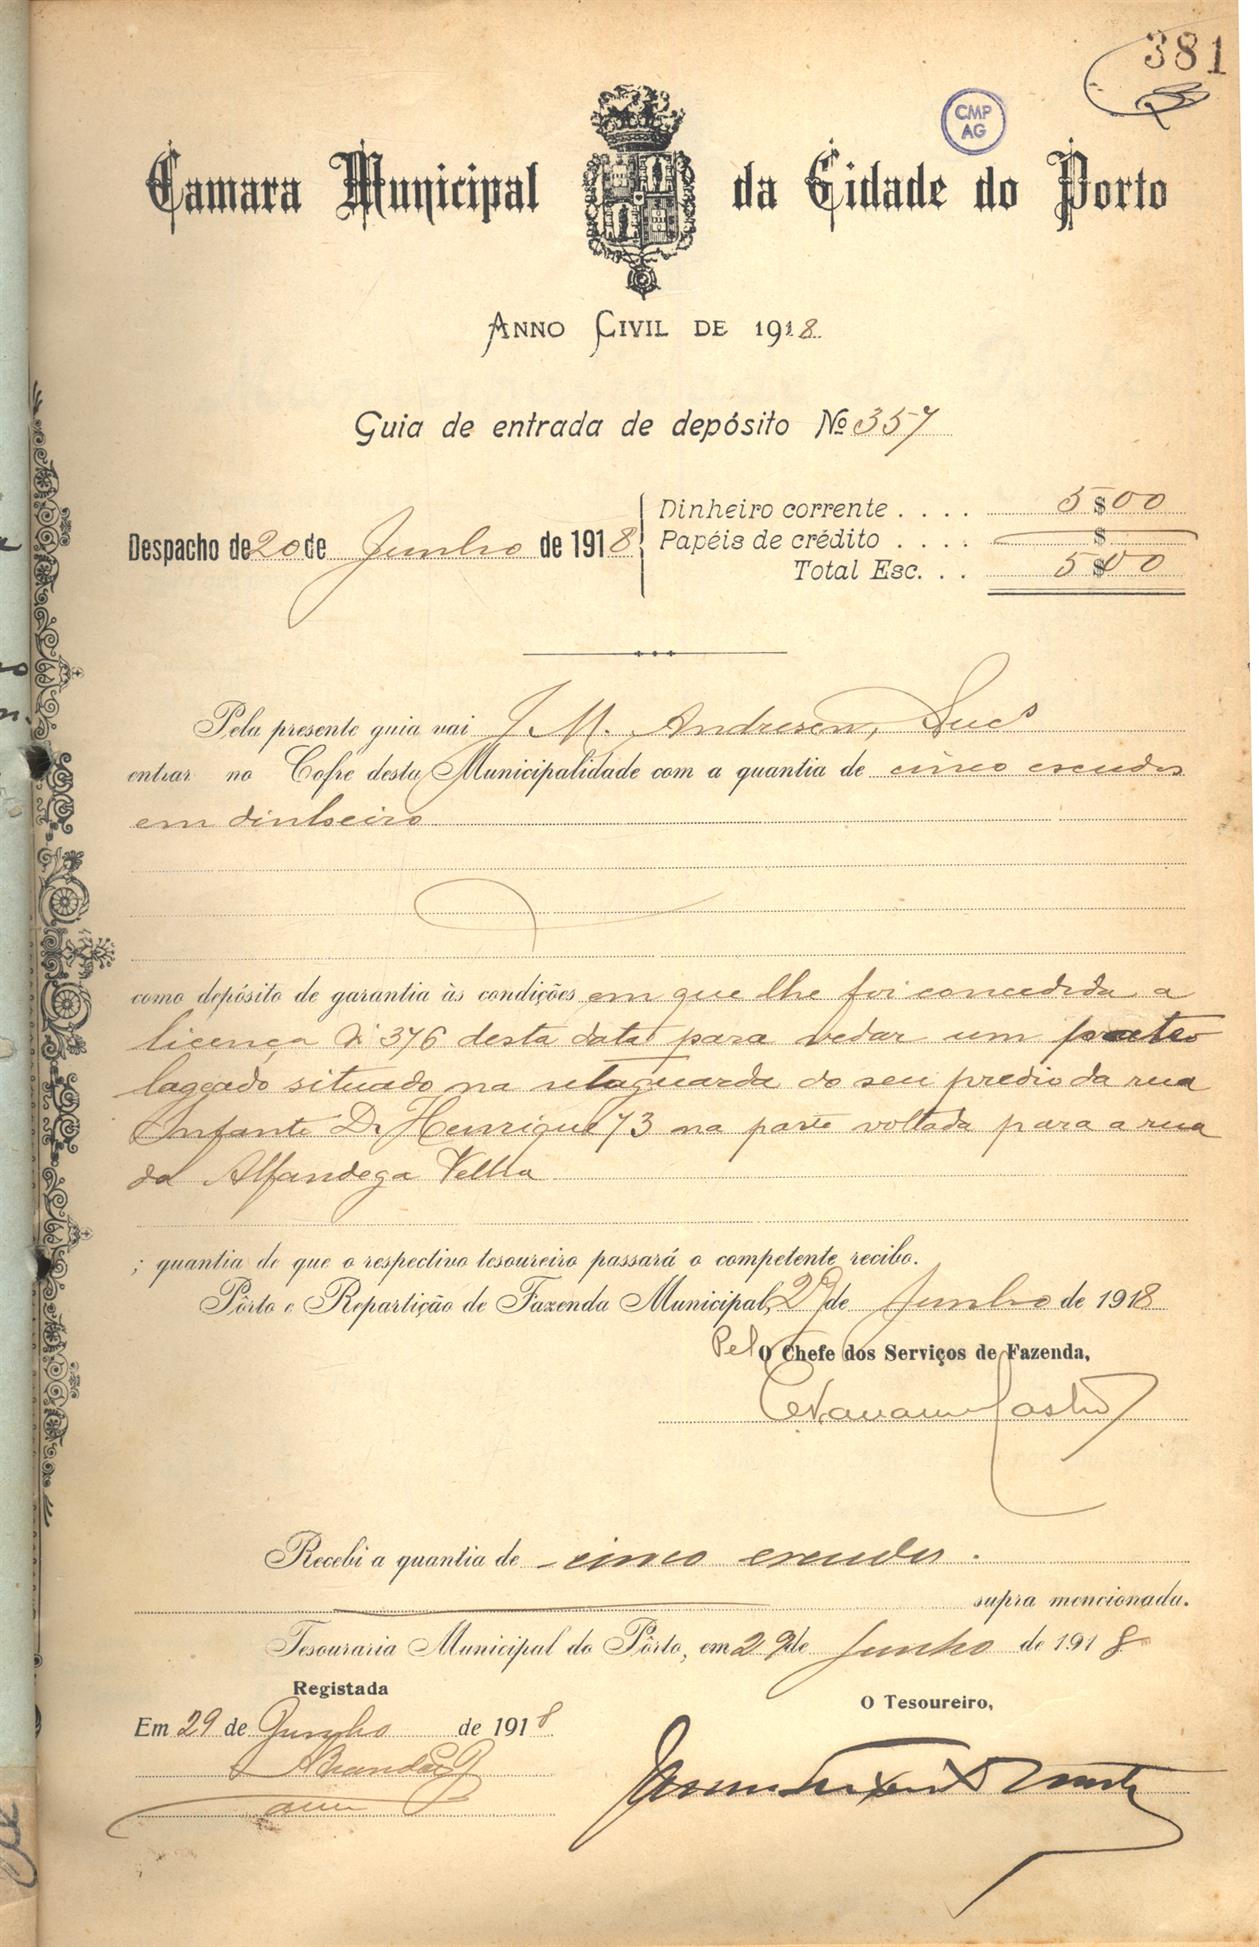 381
CMP
AG
Camara Municipal da Cidade do Porto
Anno Civil de 1918
Guia de entrada de depósito Nº 357
Dinheiro corrente . . . . 5$00
Despacho de 20 de Junho de 1918
Papéis de crédito . . . . $
Total Esc. . . 5$00
Pela presente guia vai J. M. Andresen, Sucs
entrar no Cofre desta Municipalidade com a quantia de cinco escudos
em dinheiro
como depósito de garantia às condições em que lhe foi concedida a
licença Nº 376 desta data para vedar um pateo
lageado situado na retaguarda do seu predio da rua
Infante D. Henrique 73 na parte voltada para a rua
da Alfandega Velha
; quantia de que o respectivo tesoureiro passará o competente recibo.
Pôrto e Repartição de Fazenda Municipal, 29 de Junho de 1918
Pel O Chefe dos Serviços de Fazenda,
Castro
Recebi a quantia de cinco escudos.
supra mencionada.
Tesouraria Municipal do Pôrto, em 29 de Junho de 1918
Registada
O Tesoureiro,
Em 29 de Junho de 1918